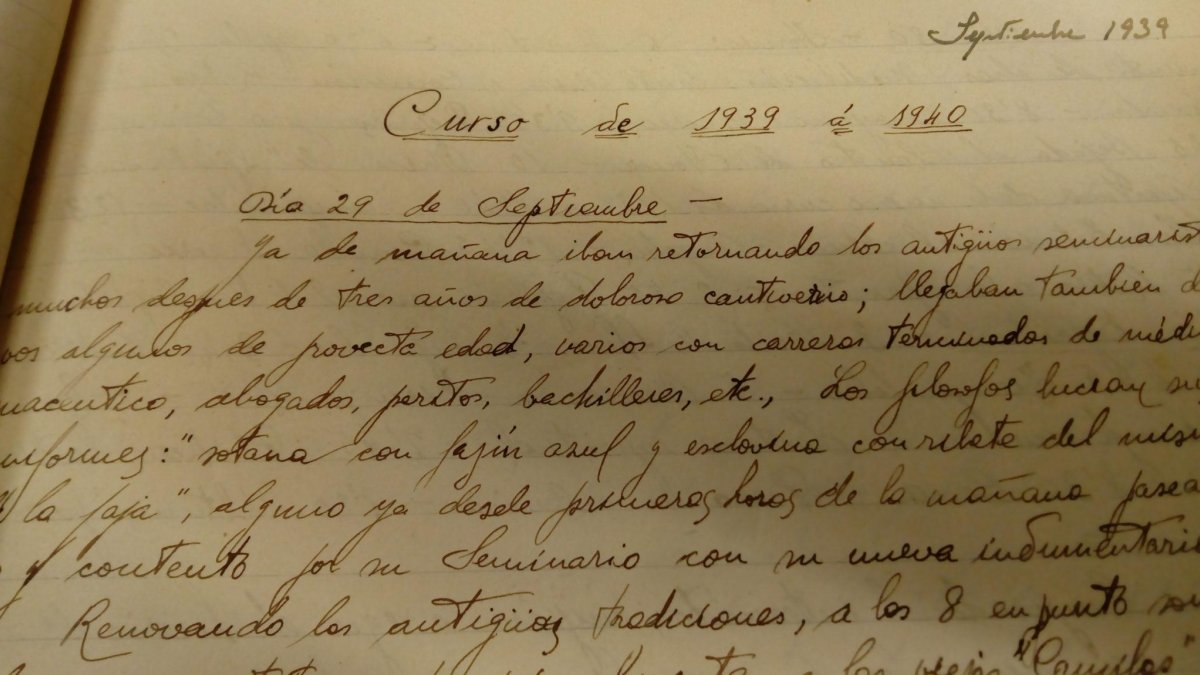 Septiembre 1939
Curso de 1939 á 1940
Día 29 de Septiembre —
Ya de mañana iban retornando los antigüos seminarist
muchos despues de tres años de doloroso cautiverio; llegaban también
vos algunos de provectá edad, varios con carreras terminadas de médi
maceutico, abogados, peritos, bachilleres, etc., Los filosofos lucian su
niformes: "sotana con fajín azul y esclavina con ribete del mism
la faja", alguno ya desde primeras horas de la mañana pasea
y contento por su Seminario con su nueva indumentaria
Renovando las antigüas tradiciones, a las 8 en punto
a los viejos "Camilos"